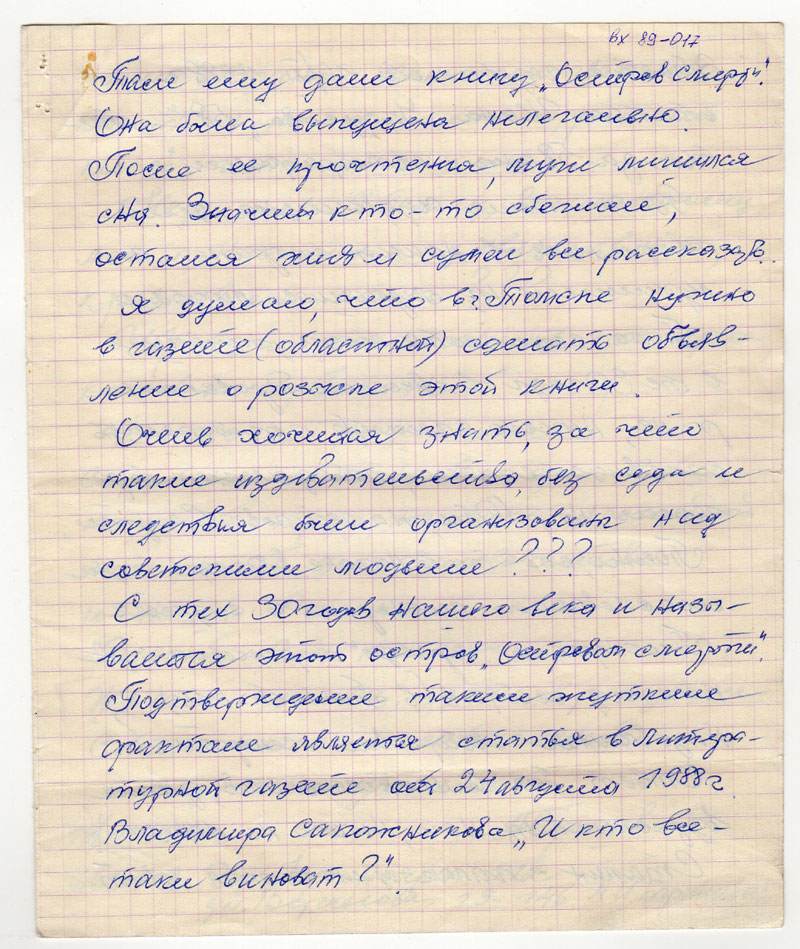 Вх 89-017
Там ему дали книгу „Остров Смерти".
Она была выпущена нелегально.
После её прочтения, муж лишился
сна. Значит кто-то сбежал,
остался жив и сумел все рассказать.
Я думаю, что в г. Томске нужно
в газете (областной) сделать объяв-
ление о розыске этой книги.
Очень хочется знать, за что
такие издевательства, без суда и
следствия были организованы над
советскими людьми ???
С тех 30 годов нашего века и назы-
вается этот остров „Островом смерти".
Подтверждением таким жутким
фактам является статья в Литера-
турной газете от 24 августа 1988 г.
Владимира Сапожникова „И кто все-
таки виноват?".